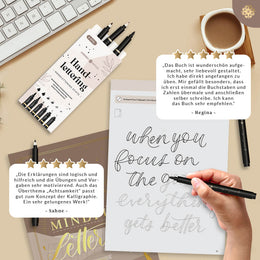 Hand-
lettering
„Das Buch ist wunderschön aufge-
macht, sehr liebevoll gestaltet.
Ich habe direkt angefangen zu
üben. Mir gefällt besonders, dass
ich erst einmal die Buchstaben und
Zahlen übermale und anschließend
selber schreibe. Ich kann
das Buch sehr empfehlen."
- Regina -
when you
focus on
the good
everything
gets better
„Die Erklärungen sind logisch und
hilfreich und die Übungen und Vor-
gaben sehr motivierend. Auch das
Überthema „Achtsamkeit" passt
gut zum Konzept der Kalligraphie.
Ein sehr gelungenes Werk!"
- Sahne -